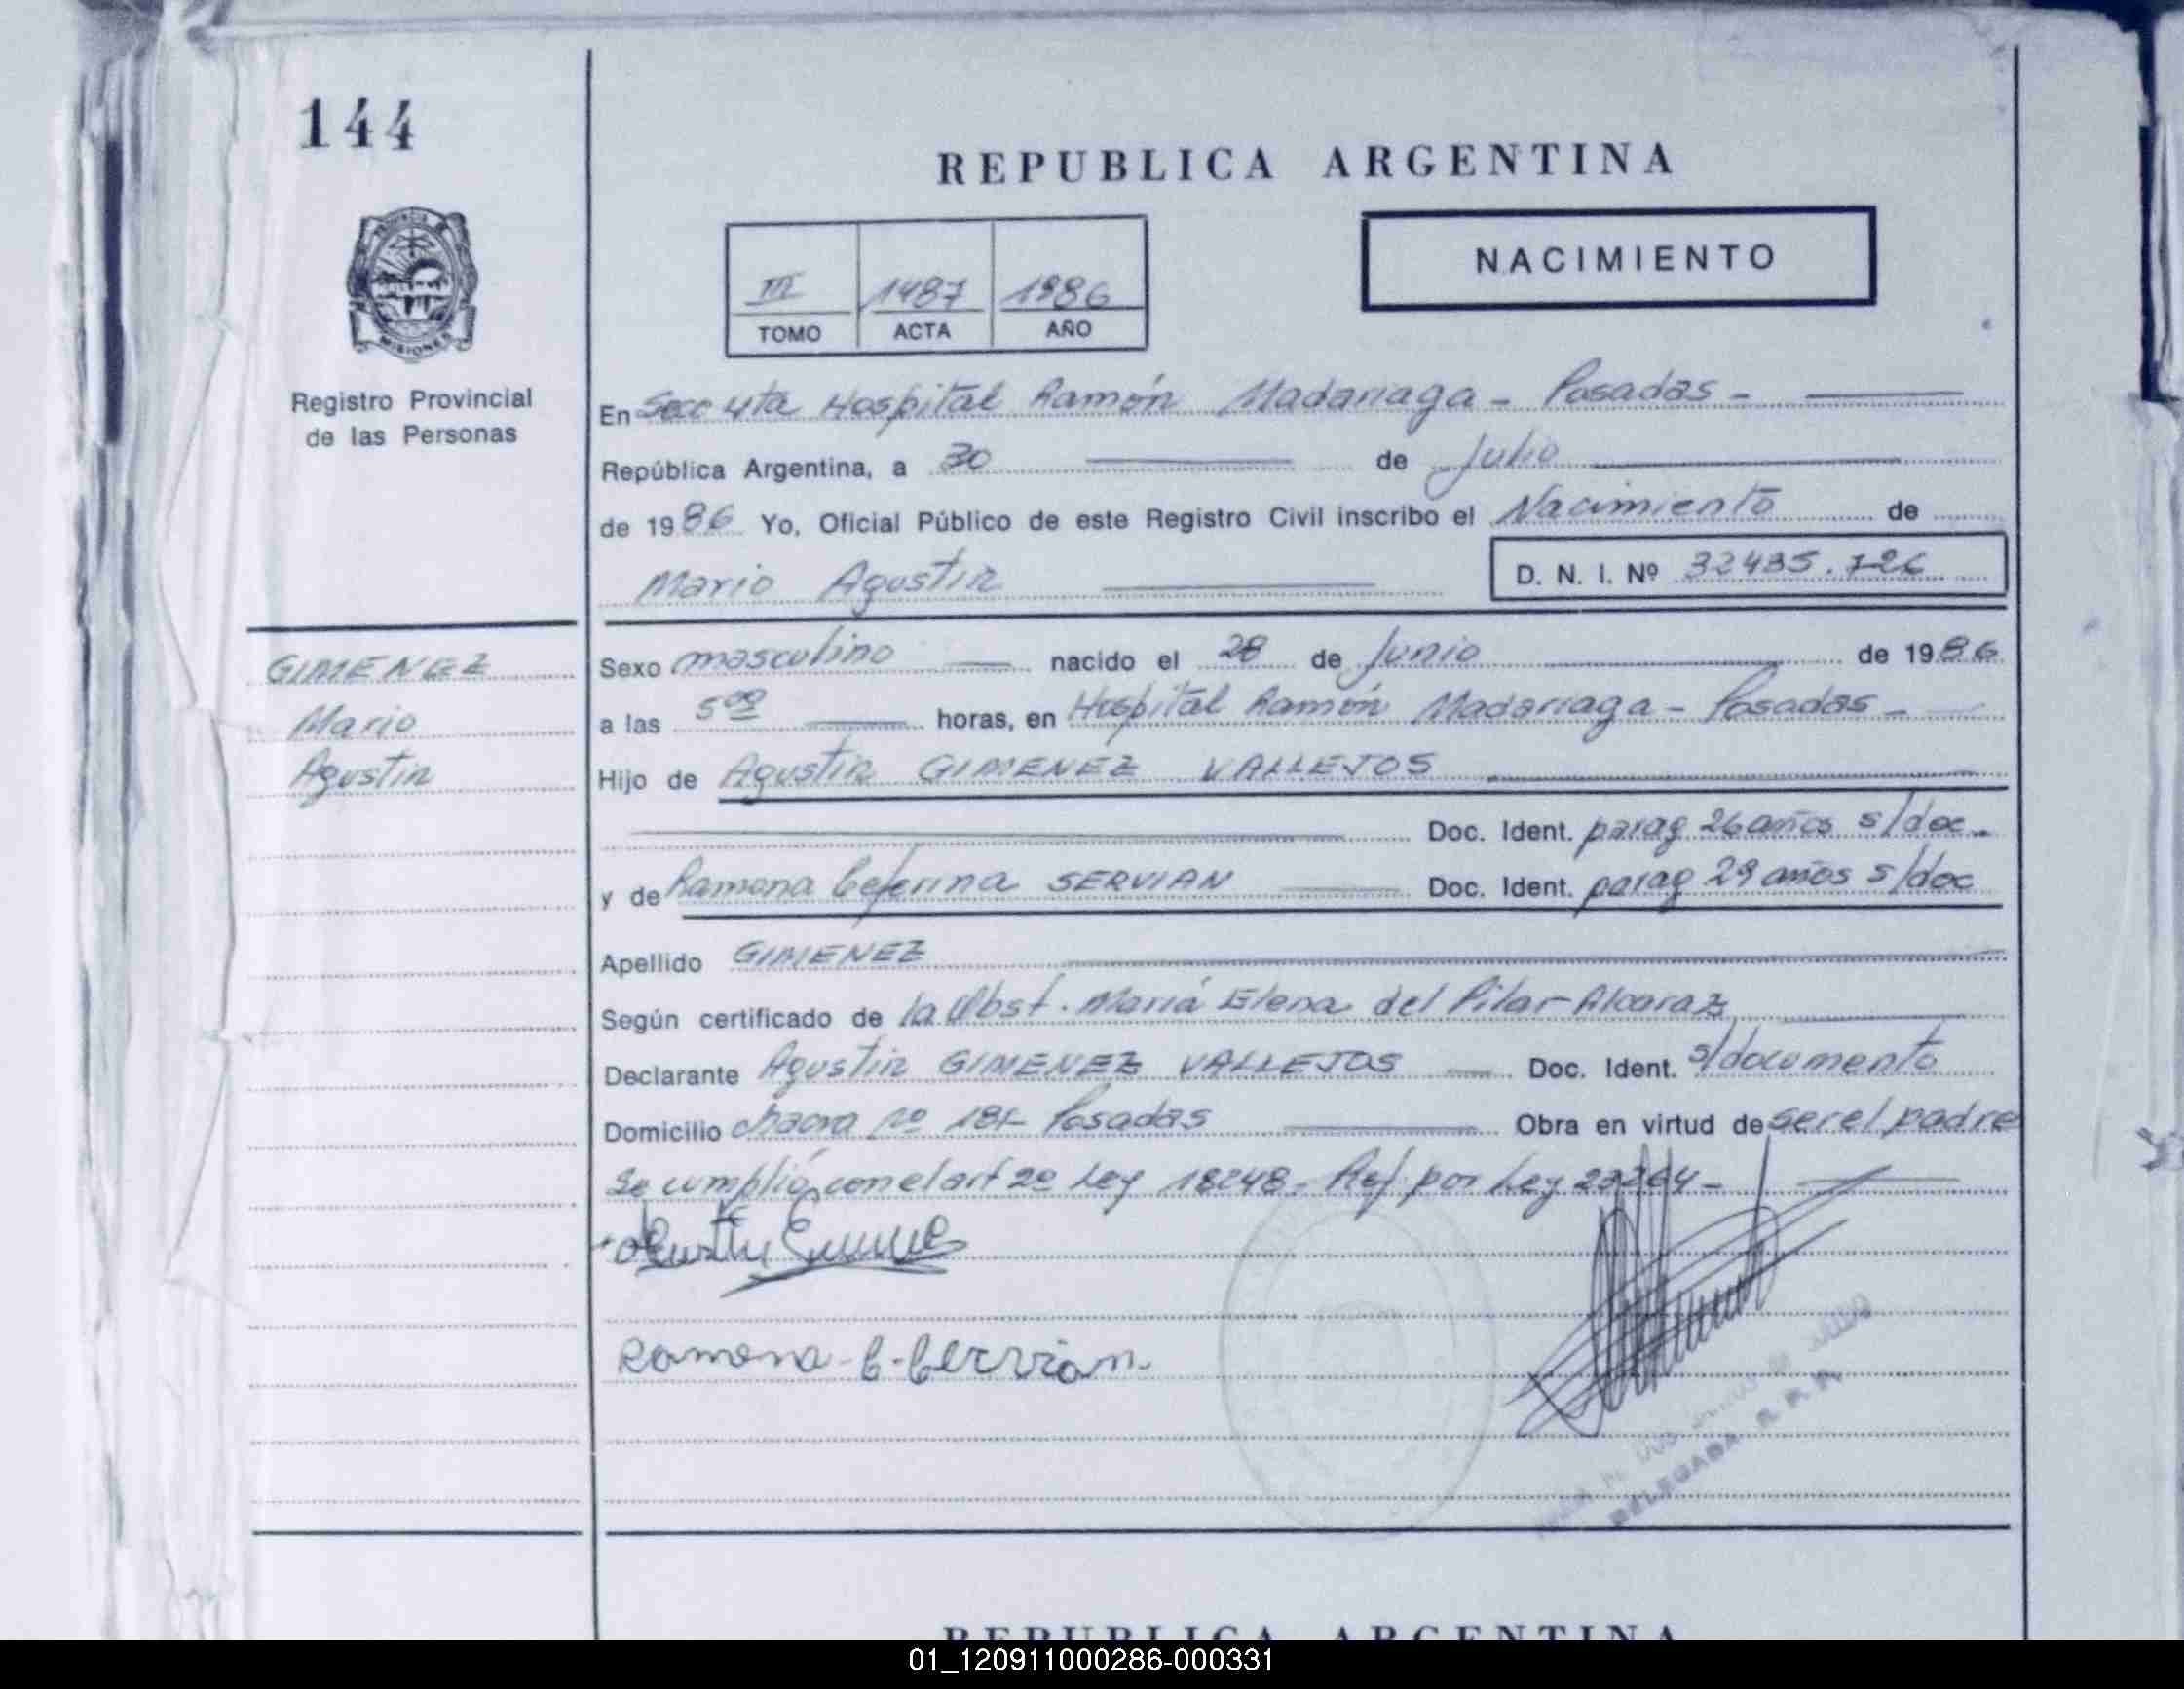 144
REPUBLICA ARGENTINA
PROVINCIA DE
MISIONES
Registro Provincial
de las Personas
III 1487 1986
TOMO ACTA AÑO
NACIMIENTO
En Secc 4ta Hospital Ramón Madariaga - Posadas -
República Argentina, a 30 de Julio
de 1986 Yo, Oficial Público de este Registro Civil inscribo el Nacimiento de
Mario Agustin
D. N. I. Nº 32435.726
GIMENEZ
Mario
Agustin
Sexo masculino nacido el 28 de Junio de 1986
a las 5 00 horas, en Hospital Ramón Madarriaga - Posadas -
Hijo de Agustin GIMENEZ VALLEJOS
Doc. Ident. parag 26 años s/doc.
y de Ramona Ceferina SERVIAN Doc. Ident. parag 29 años s/doc
Apellido GIMENEZ
Según certificado de la Obst. María Elena del Pilar Alcaraz
Declarante Agustin GIMENEZ VALLEJOS Doc. Ident. s/documento
Domicilio chacra nº 181- Posadas Obra en virtud de ser el padre
Se cumplió con el art 2º Ley 18248. Ref. por Ley 23264 -
Ramona C. Cervian.
DELEGADA R. P. P.
REPUBLICA ARGENTINA
01_120911000286-000331